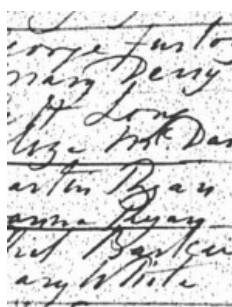 eorge Furlo
mary Derry
Long
liza McDa
artin Ryan
anna Ryan
Barker
ary White